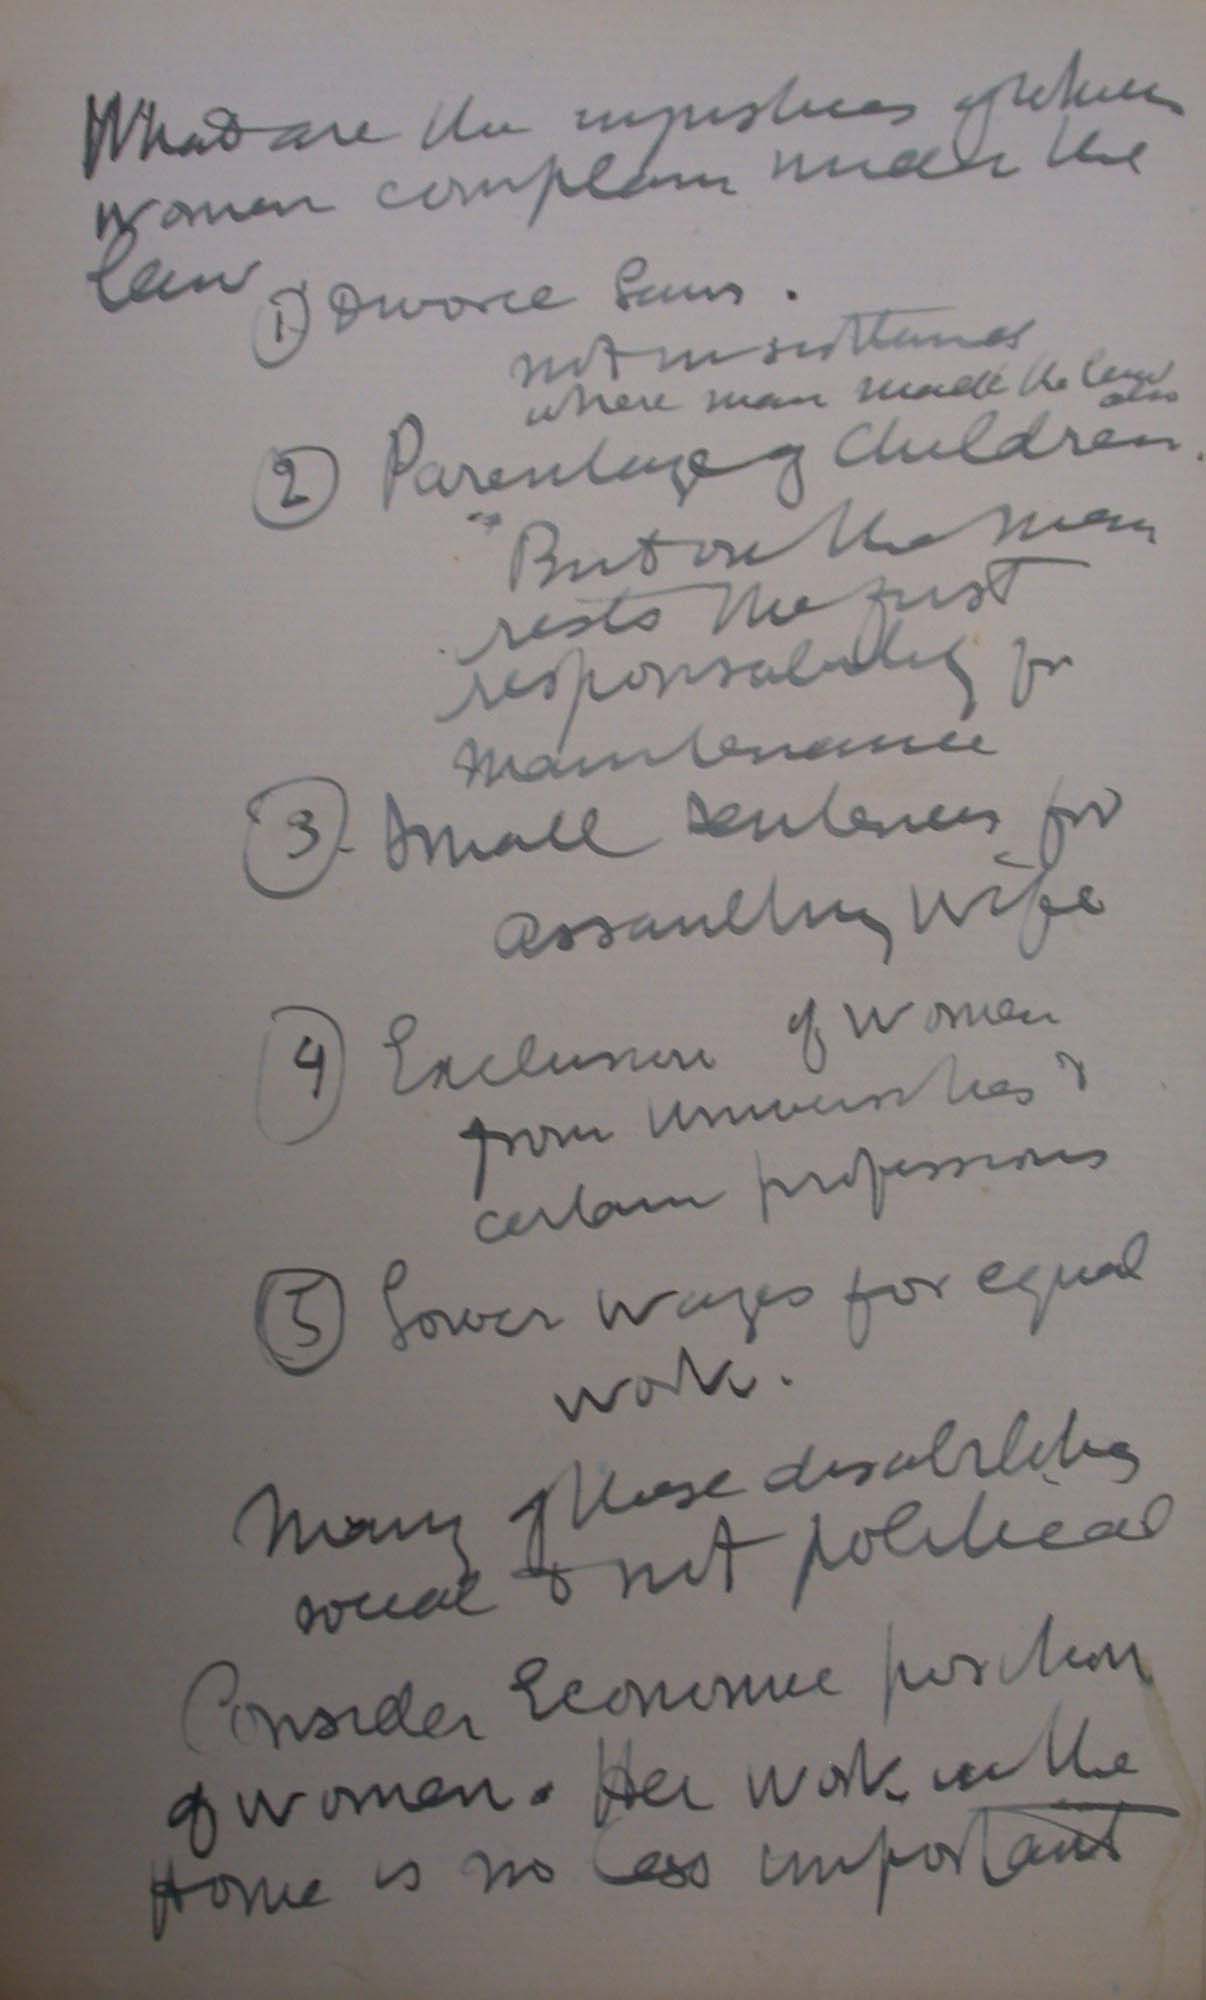 What are the injustices of which
women complain under the
law
① Divorce Laws.
not in
where man made the law
also
② Parentage of Children.
"But on the man
rests the just
responsability for
maintenance
③. Small sentences for
assaulting wife
④ Exclusion of women
from universities &
certain professions
⑤ Lower wages for equal
work.
Many of these disabilities
social & not political
Consider Economic position
of women. Her work in the
Home is no less important